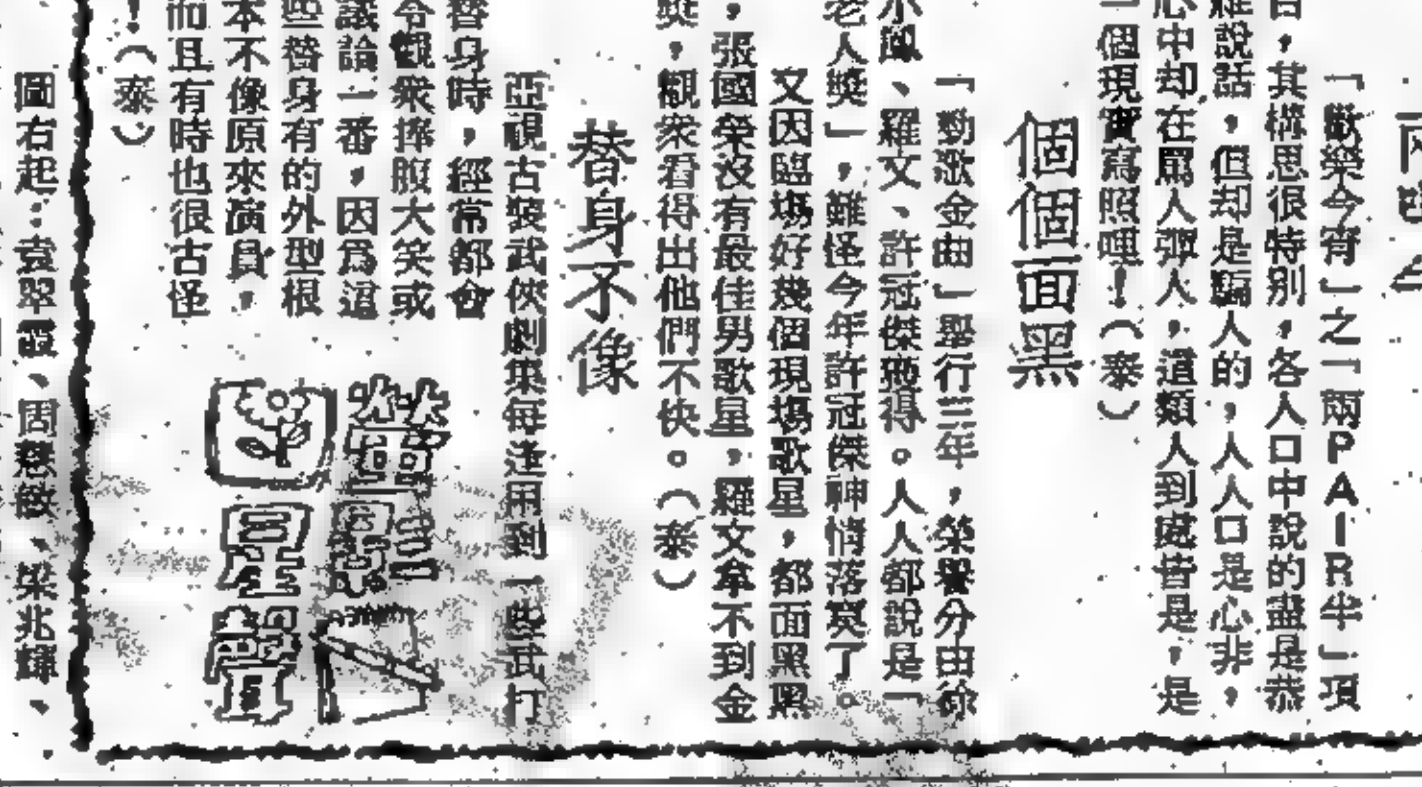 「歡樂今宵」之「兩PAIR半」項
目,其構思很特別,各人口中說的盡是恭
維說話,但却是騙人的,人人口是心非,
心中却在罵人彈人,這類人到處皆是,是
一個現實寫照哩!(泰)
個個面黑
「勁歌金曲」舉行三年,榮譽分由徐
小鳳、羅文、許冠傑獲得。人人都說是「
老人獎」,難怪今年許冠傑神情落寞了。
又因臨場好幾個現場歌星,都面黑黑
,張國榮沒有最佳男歌星,羅文拿不到金
獎,觀衆看得出他們不快。(泰)
替身不像
亞視古裝武俠劇集每逢用到一些武打
替身時,經常都會
令觀衆捧腹大笑或
議論一番,因爲這
些替身有的外型根
本不像原來演員,
而且有時也很古怪
!(泰)
螢影
星聲
圖右起:袁翠霞、周慧敏、梁兆輝、